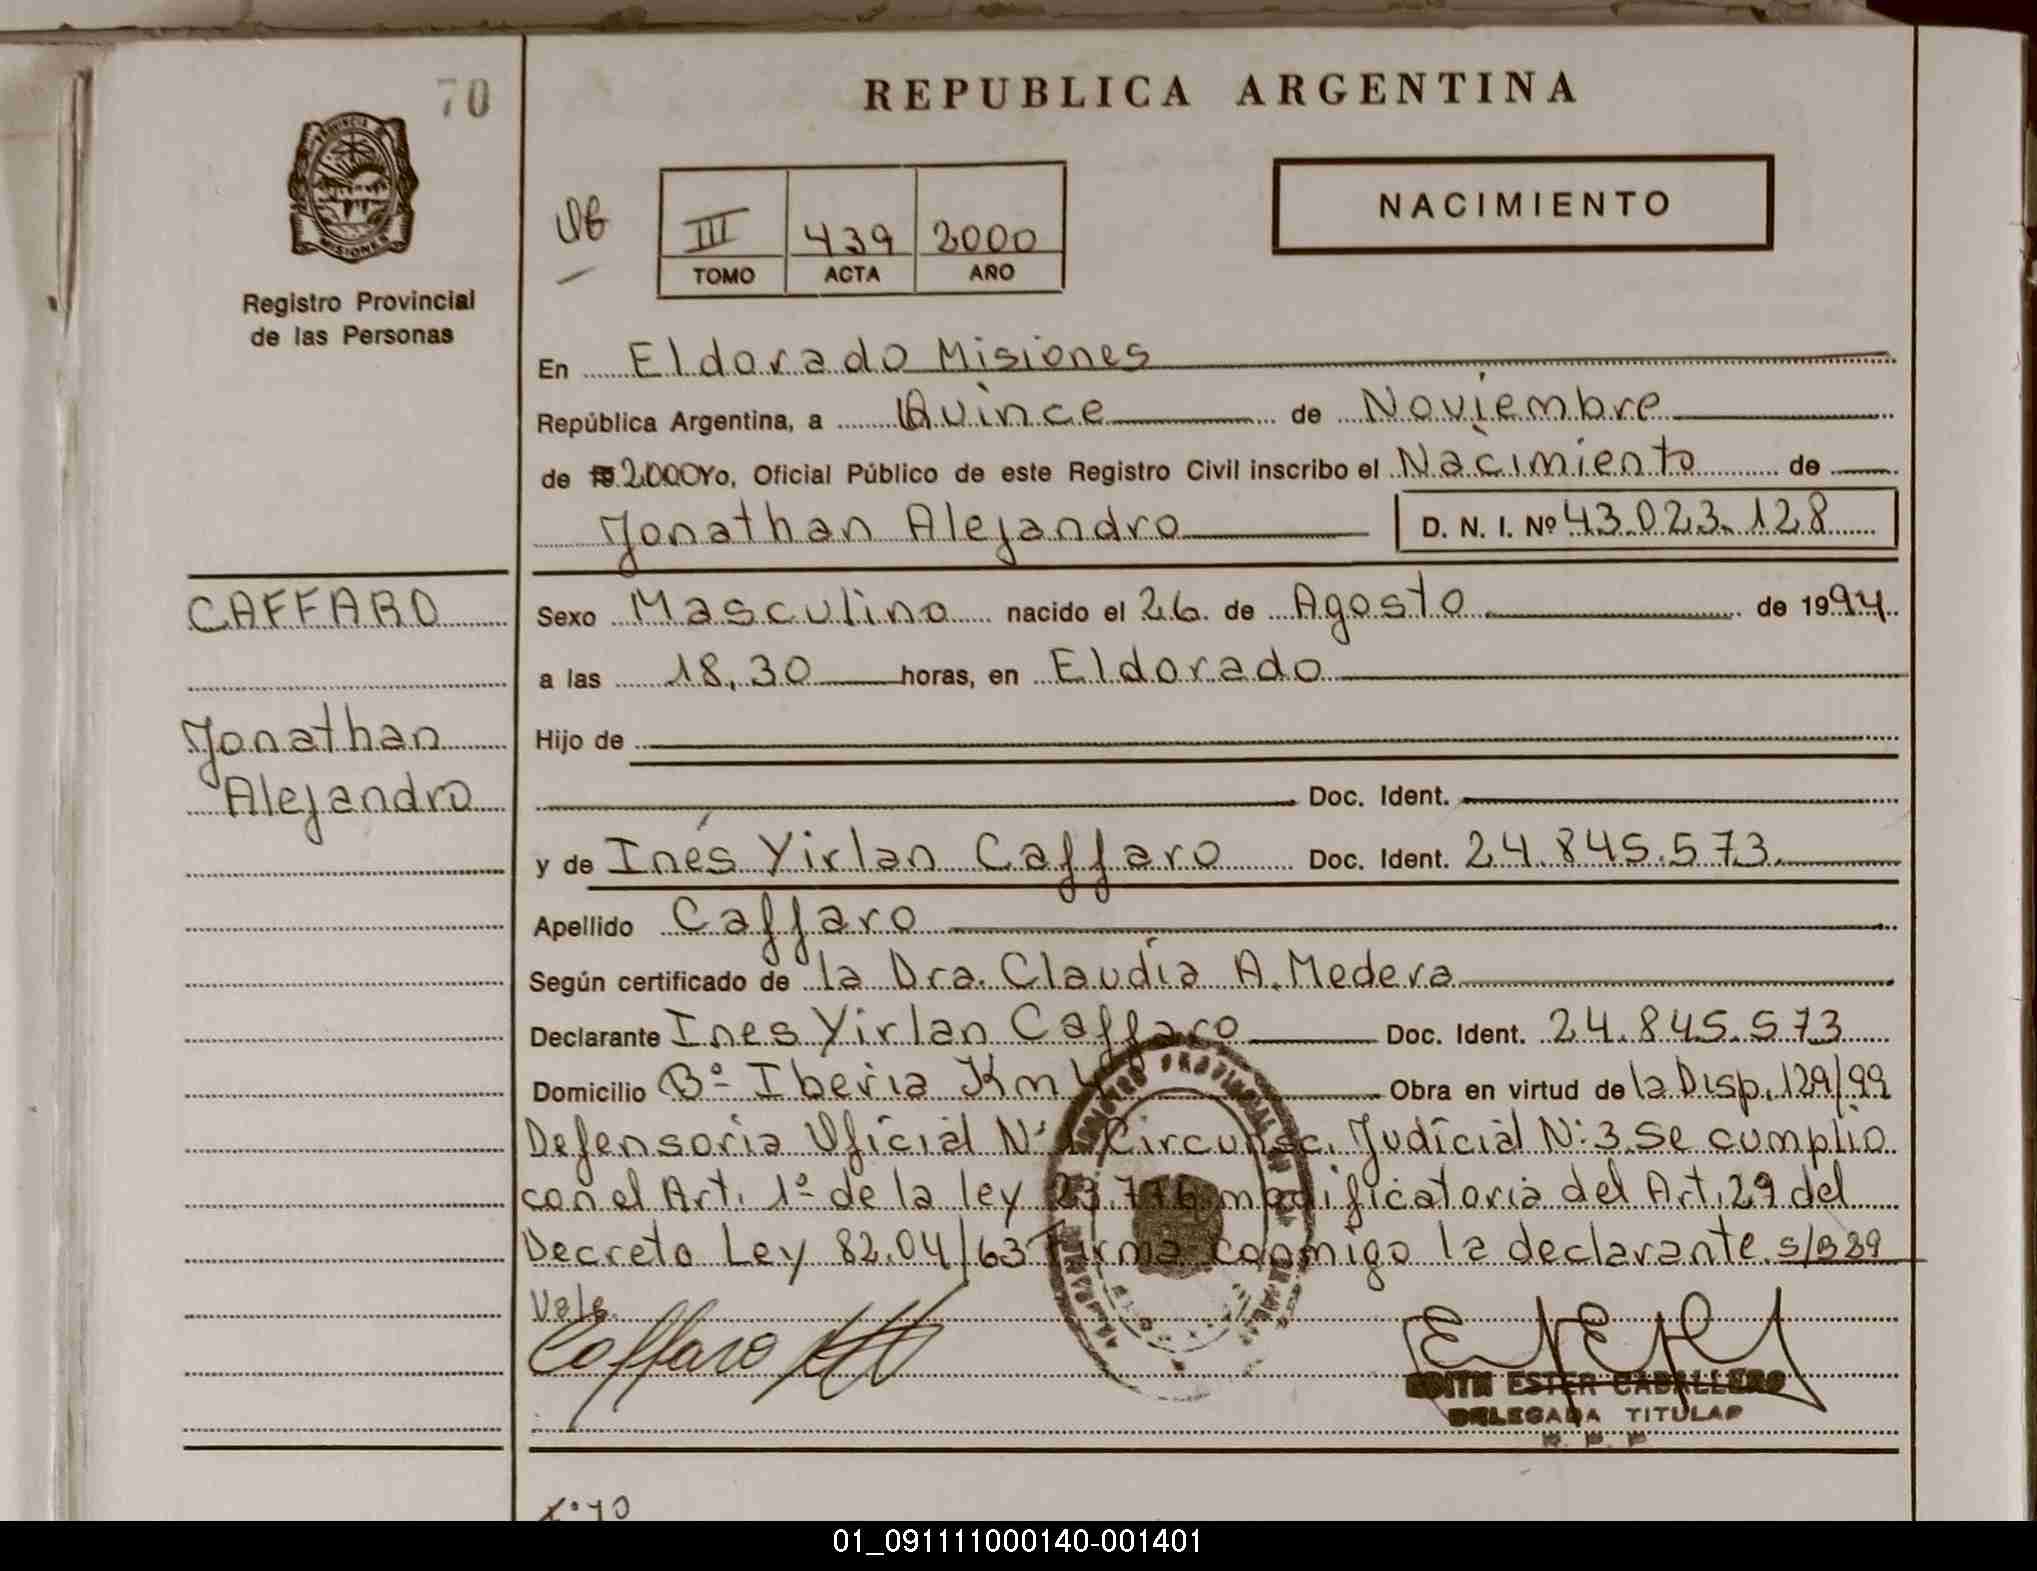 70
REPUBLICA ARGENTINA
PROVINCIA D
MISIONES
Registro Provincial
de las Personas
NACIMIENTO
III 439 2000
TOMO ACTA AÑO
En Eldorado Misiones
República Argentina, a Quince de Noviembre
de 2000 Yo, Oficial Público de este Registro Civil inscribo el Nacimiento de
Jonathan Alejandro D. N. I. Nº 43.023.128
CAFFARO
Jonathan
Alejandro
Sexo Masculino nacido el 26 de Agosto de 1994
a las 18,30 horas, en Eldorado
Hijo de
Doc. Ident.
y de Inés Yirlan Caffaro Doc. Ident. 24.845.573
Apellido Caffaro
Según certificado de la Dra. Claudia A. Medera
Declarante Ines Yirlan Caffaro Doc. Ident. 24.845.573
Domicilio Bº Iberia Km Obra en virtud de la Disp. 129/99
Defensoria Oficial Nº 1 Circunsc. Judicial Nº 3 Se cumplio
con el Art. 1º de la ley 23.776 modificatoria del Art. 29 del
Decreto Ley 82.04/63 Firma conmigo la declarante. s/B 89
Vale.
Caffaro
EDITH ESTER CABALLERO
DELEGADA TITULAR
R. P. P
Fº 70
01_091111000140-001401